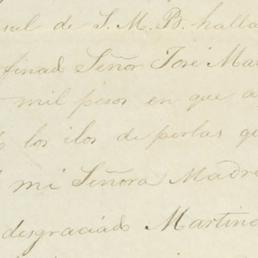 sul de S. M. Bs. halla
finad Señor José Ma
mil pesos en que a
los ilos de perlas qu
mi Señora Madre
desgraciado Martin